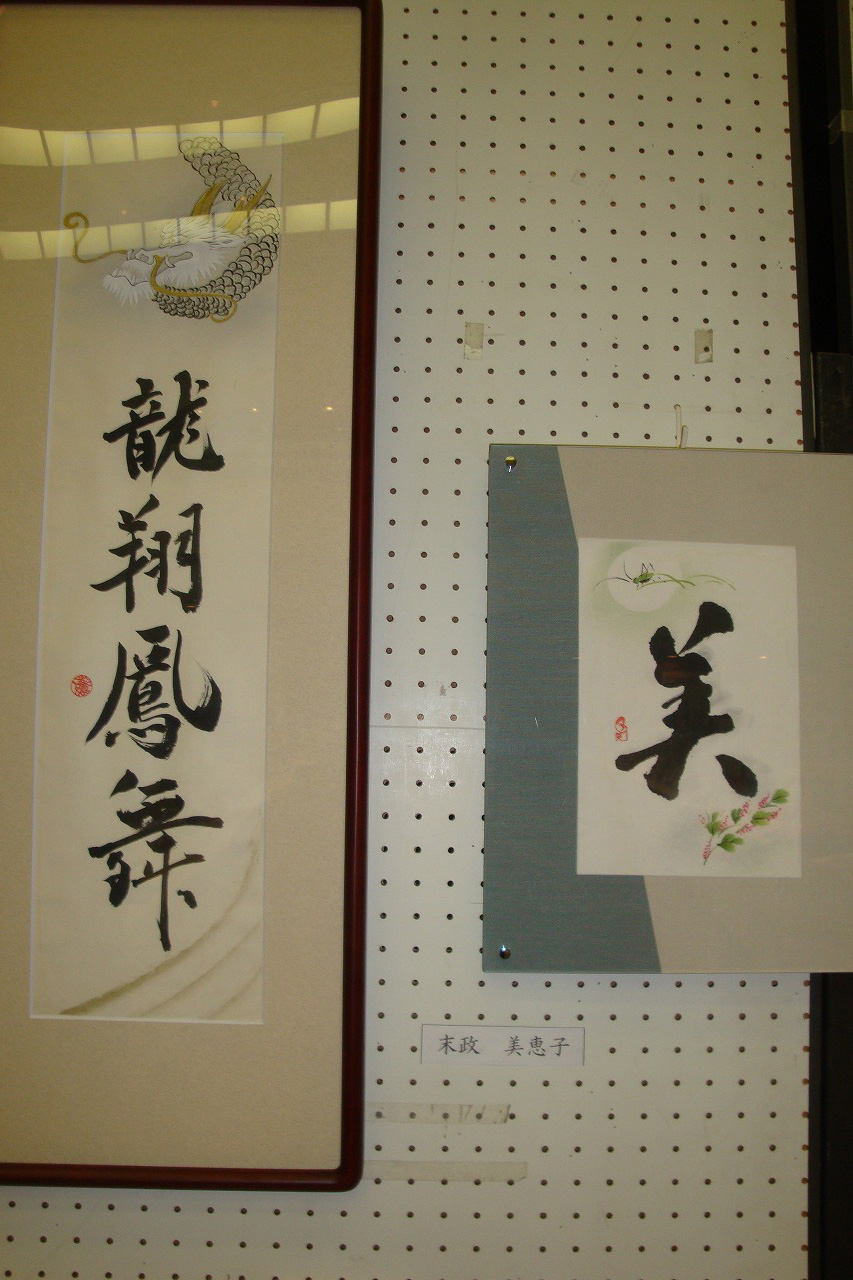 龍翔鳳舞
美
末政 美恵子